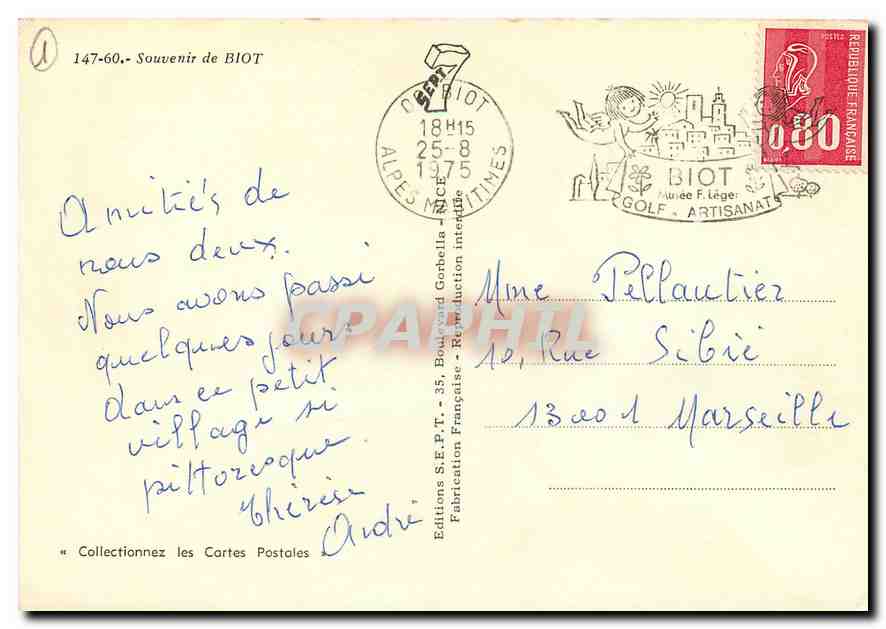 1
147-60.- Souvenir de BIOT
SEPT 7
BIOT
18H15
25-8
1975
ALPES MARITIMES
BIOT
Musée F. Léger
GOLF - ARTISANAT
POSTES
REPUBLIQUE FRANÇAISE
0,80
Amitiés de
nous deux.
Nous avons passé
quelques jours
dans ce petit
village si
pittoresque.
Thérèse
André
« Collectionnez les Cartes Postales »
Editions S.E.P.T. - 35, Boulevard Gorbella - NICE
Fabrication Française - Reproduction interdite
CPAPHIL
Mme Pellautier
10, Rue Sibié
13001 Marseille